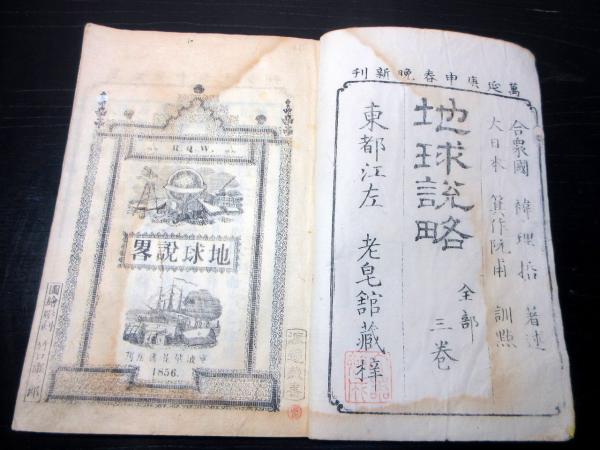 萬延庚申春晩新刊
合衆國 褘理哲 著述
大日本 箕作阮甫 訓點
地球説略
全部
三巻
東都江左 老皂舘藏梓
R.Q.W.
地球説畧
寧波華花書房刊
1856.